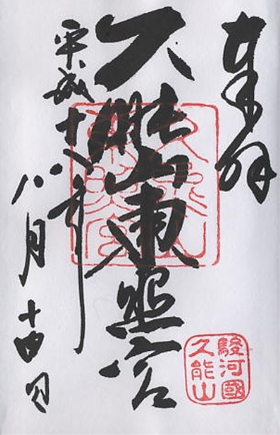 奉拝
久能山東照宮
平成十八年
八月十四日
駿河國
久能山